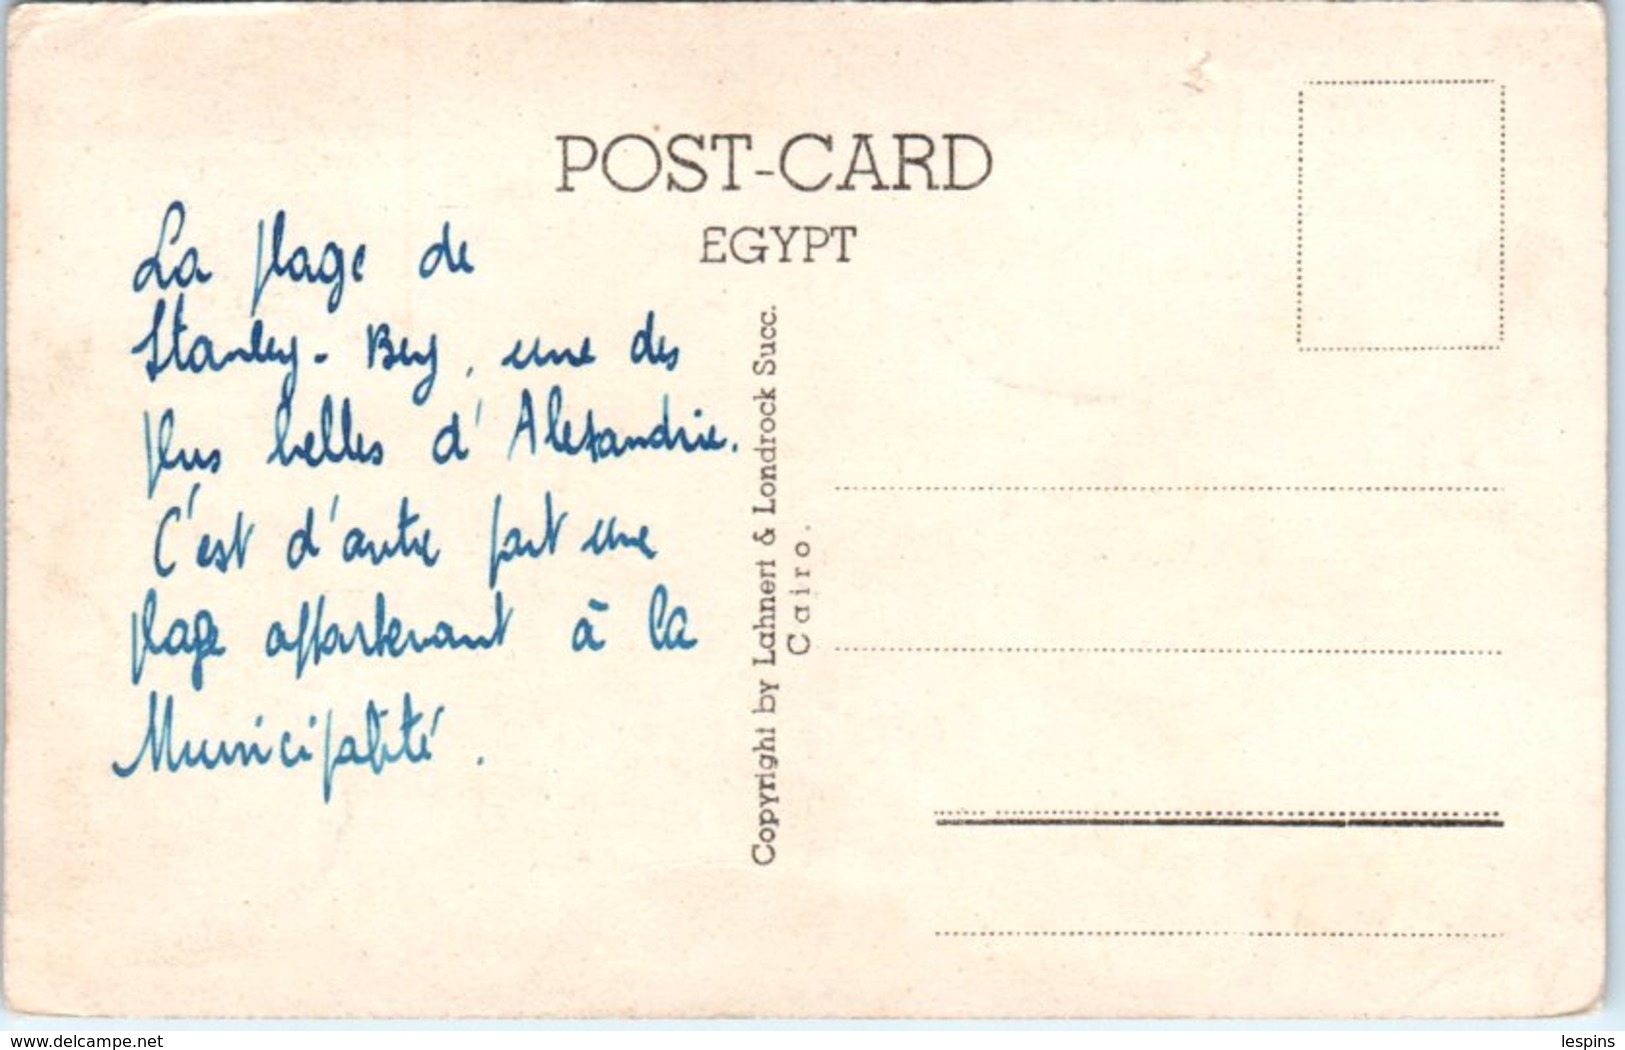 POST-CARD
EGYPT
La plage de
Stanley-Bey, une des
plus belles d'Alexandrie.
C'est d'autre part une
plage appartenant à la
Municipalité.
Copyright by Lahnert & Londrock Succ.
Cairo.
www.delcampe.net
lespins